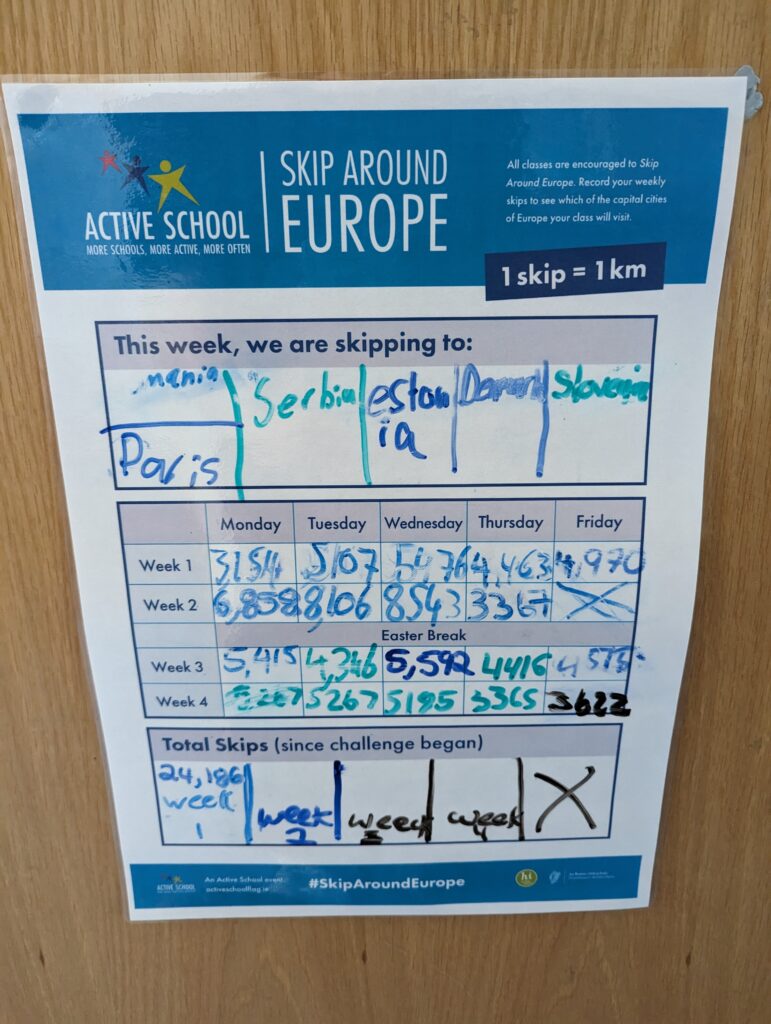 ACTIVE SCHOOL
MORE SCHOOLS, MORE ACTIVE, MORE OFTEN
SKIP AROUND
EUROPE
All classes are encouraged to Skip
Around Europe. Record your weekly
skips to see which of the capital cities
of Europe your class will visit.
1 skip = 1 km
This week, we are skipping to:
Paris
Serbia
eston
ia
Slovenia
Monday Tuesday Wednesday Thursday Friday
Week 1 5107 5476 4,463 4,970
Week 2 6,858 8,106 8543 3367 X
Easter Break
Week 3 5,415 4,346 5,592 4416
Week 4 5267 5195 3365 3622
Total Skips (since challenge began)
24,186
week
1
week
2
week
4
X
ACTIVE SCHOOL
An Active School event.
activeschoolflag.ie
#SkipAroundEurope